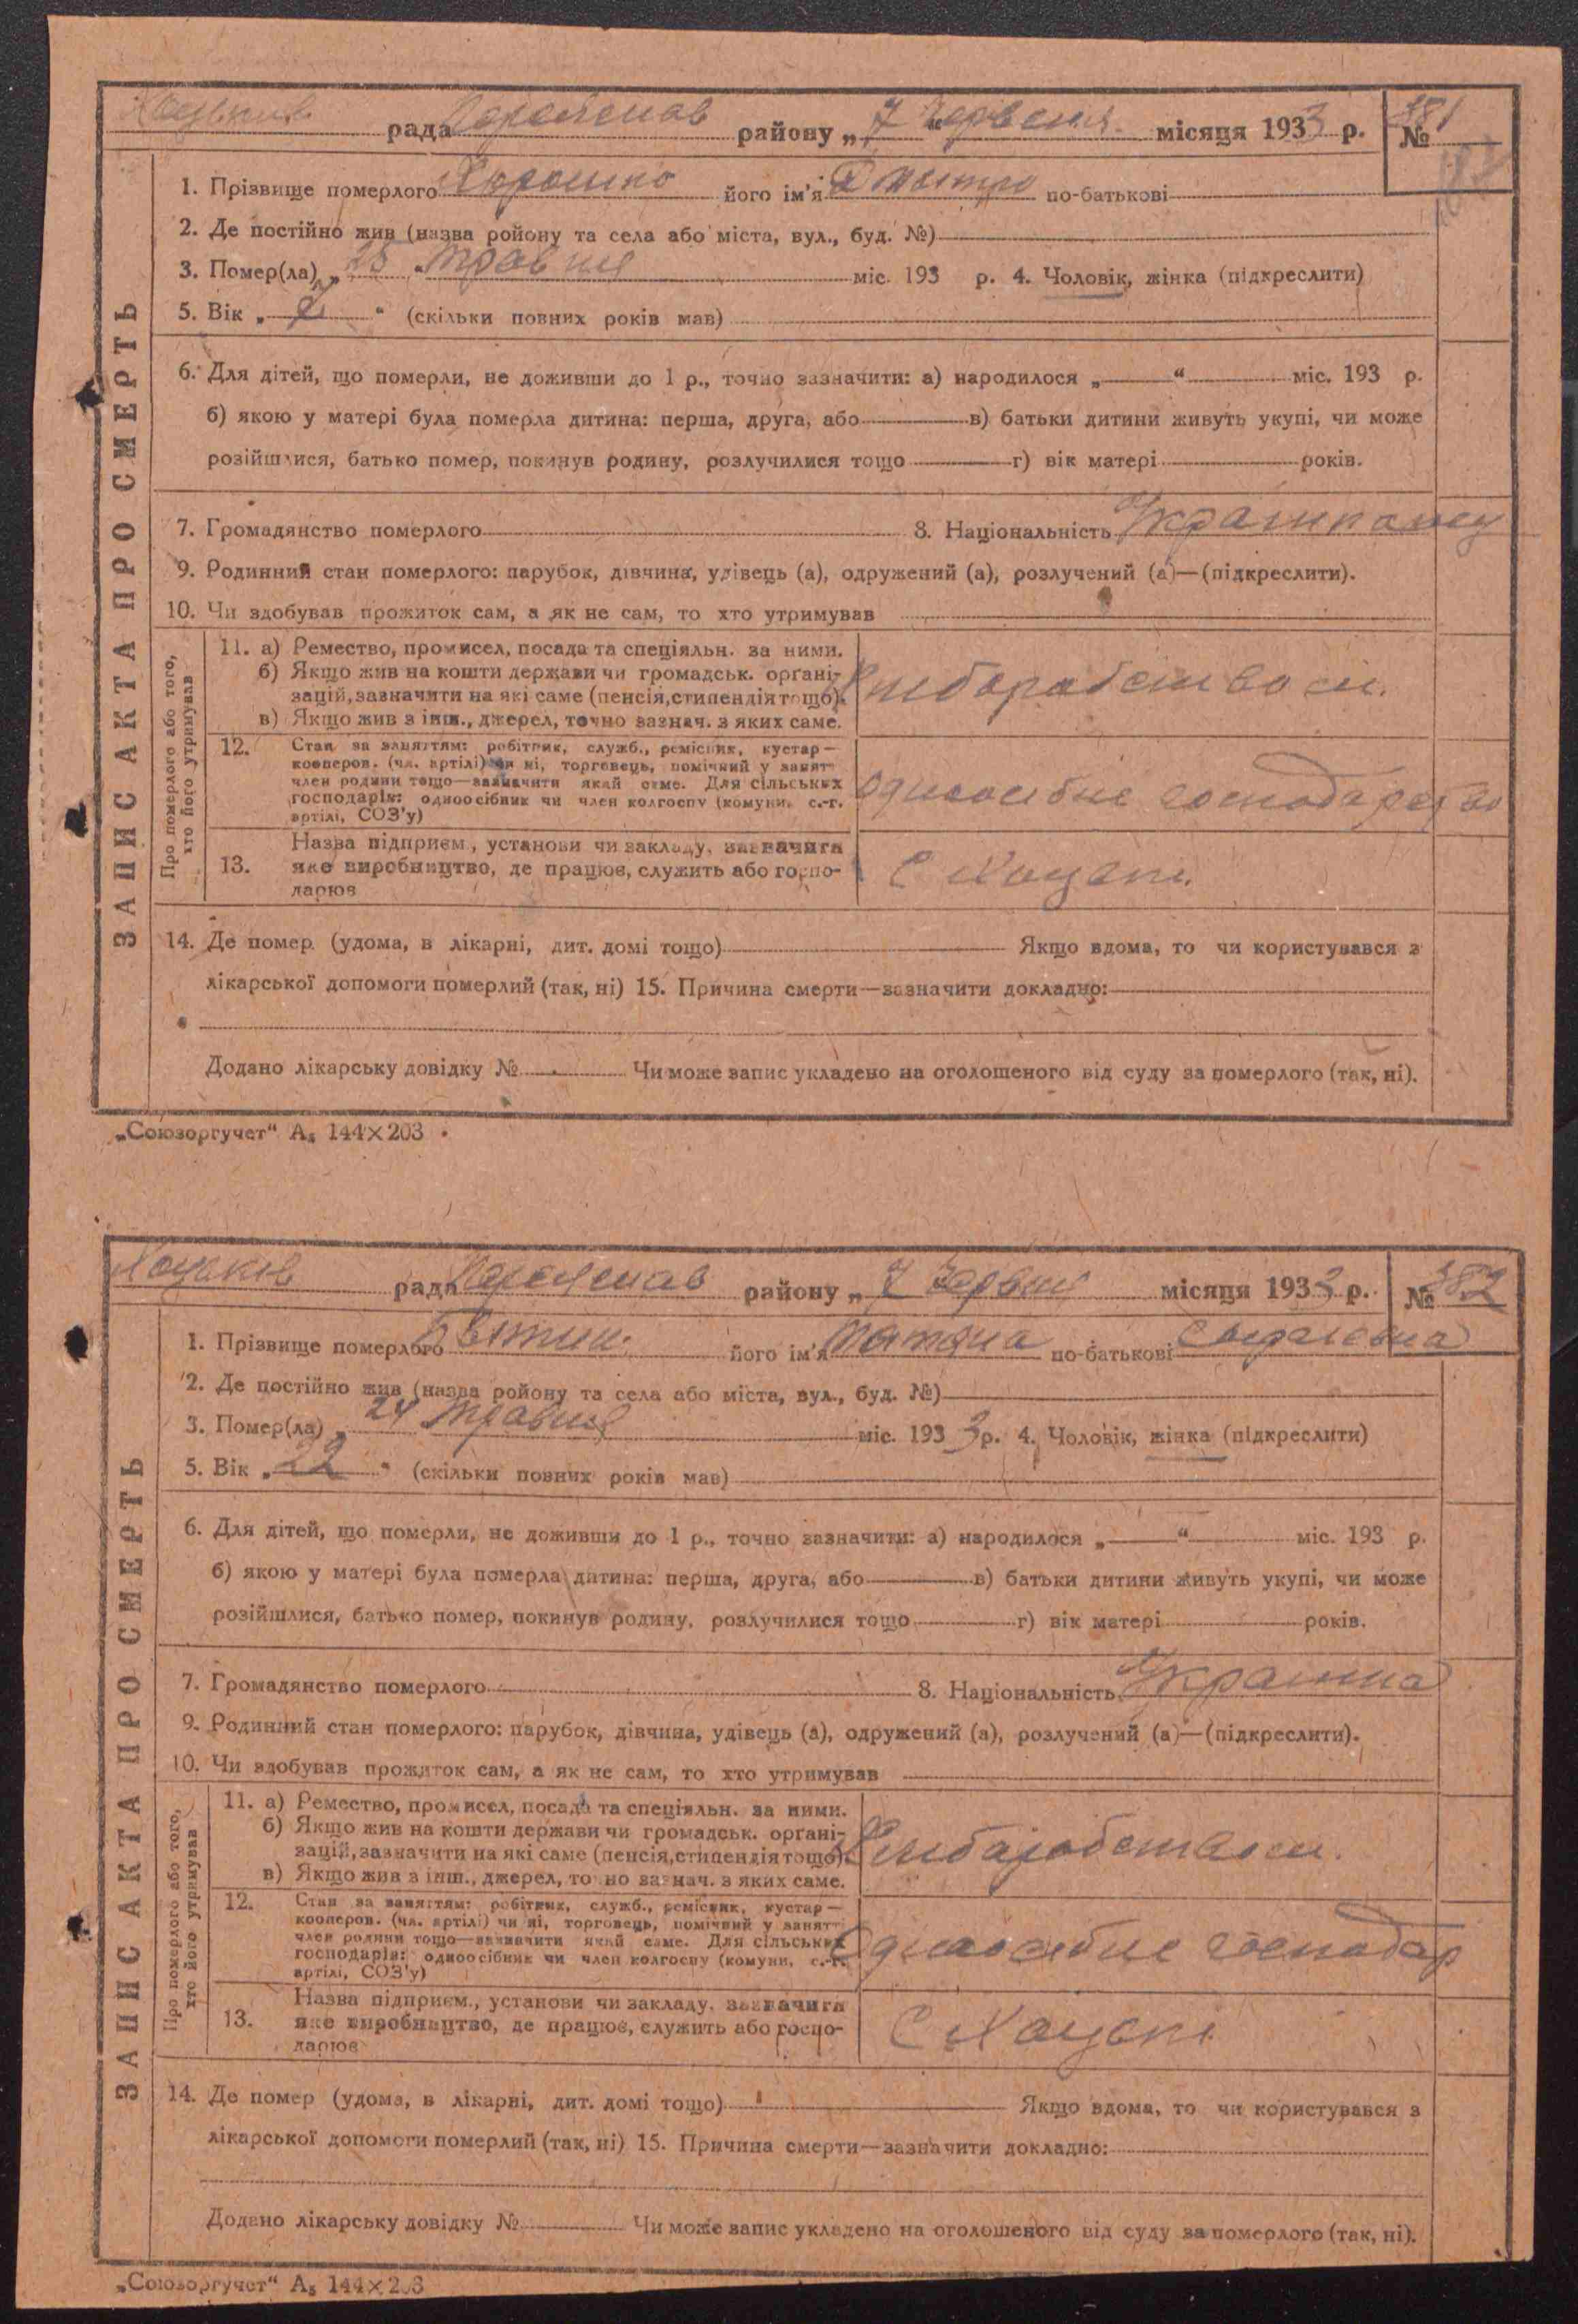 рада Переяслав району „ 7 " Червня місяця 1933 р. № 381
1. Прізвище померлого його ім'я Дмитро по-батькові
2. Де постійно жив (назва ройону та села або міста, вул., буд. №)
3. Помер(ла) „ 25 " травня міс. 193 р. 4. Чоловік, жінка (підкреслити)
5. Вік „ 2 " (скільки повних років мав)
6. Для дітей, що померли, не доживши до 1 р., точно зазначити: а) народилося „ " міс. 193 р.
б) якою у матері була померла дитина: перша, друга, або в) батьки дитини живуть укупі, чи може
розійшлися, батько помер, покинув родину, розлучилися тощо г) вік матері років.
7. Громадянство померлого 8. Національність
9. Родинний стан померлого: парубок, дівчина, удівець (а), одружений (а), розлучений (а)—(підкреслити).
10. Чи здобував прожиток сам, а як не сам, то хто утримував
Про померлого або того, хто його утримував
11. а) Ремество, промисел, посада та спеціяльн. за ними.
б) Якщо жив на кошти держави чи громадськ. органі-
зацій, зазначити на які саме (пенсія, стипендія тощо).
в) Якщо жив з інш., джерел, точно зазнач. з яких саме.
12. Стан за заняттям: робітник, служб., ремісник, кустар—
кооперов. (чл. артілі) чи ні, торговець, помічний у занятт
член родини тощо—зазначити який саме. Для сільських
господарів: одноосібник чи член колгоспу (комуни, с.-г.
артілі, СОЗ'у)
одноосібне господарство
13. Назва підприєм., установи чи закладу, зазначити
яке виробництво, де працює, служить або госпо-
дарює
С Хоцьки
14. Де помер (удома, в лікарні, дит. домі тощо) Якщо вдома, то чи користувався з
лікарської допомоги померлий (так, ні) 15. Причина смерти—зазначити докладно:
Додано лікарську довідку № Чи може запис укладено на оголошеного від суду за померлого (так, ні).
ЗАПИС АКТА ПРО СМЕРТЬ
„Союзоргучет" А₅ 144×203
Хоцьків рада Переяслав району „ 7 Червня місяця 1933 р. № 382
1. Прізвище померлого його ім'я Татяна по-батькові
2. Де постійно жив (назва ройону та села або міста, вул., буд. №)
3. Помер(ла) „ 24 травня міс. 1933 р. 4. Чоловік, жінка (підкреслити)
5. Вік „ 22 " (скільки повних років мав)
6. Для дітей, що померли, не доживши до 1 р., точно зазначити: а) народилося „ " міс. 193 р.
б) якою у матері була померла дитина: перша, друга, або в) батьки дитини живуть укупі, чи може
розійшлися, батько помер, покинув родину, розлучилися тощо г) вік матері років.
7. Громадянство померлого 8. Національність
9. Родинний стан померлого: парубок, дівчина, удівець (а), одружений (а), розлучений (а)—(підкреслити).
10. Чи здобував прожиток сам, а як не сам, то хто утримував
Про померлого або того, хто його утримував
11. а) Ремество, промисел, посада та спеціяльн. за ними.
б) Якщо жив на кошти держави чи громадськ. органі-
зацій, зазначити на які саме (пенсія, стипендія тощо).
в) Якщо жив з інш., джерел, точно зазнач. з яких саме.
12. Стан за заняттям: робітник, служб., ремісник, кустар—
кооперов. (чл. артілі) чи ні, торговець, помічний у занятт
член родини тощо—зазначити який саме. Для сільських
господарів: одноосібник чи член колгоспу (комуни, с.-г.
артілі, СОЗ'у)
Одноосібне господар
13. Назва підприєм., установи чи закладу, зазначити
яке виробництво, де працює, служить або госпо-
дарює
С Хоцьки
14. Де помер (удома, в лікарні, дит. домі тощо) Якщо вдома, то чи користувався з
лікарської допомоги померлий (так, ні) 15. Причина смерти—зазначити докладно:
Додано лікарську довідку № Чи може запис укладено на оголошеного від суду за померлого (так, ні).
ЗАПИС АКТА ПРО СМЕРТЬ
„Союзоргучет" А₅ 144×203